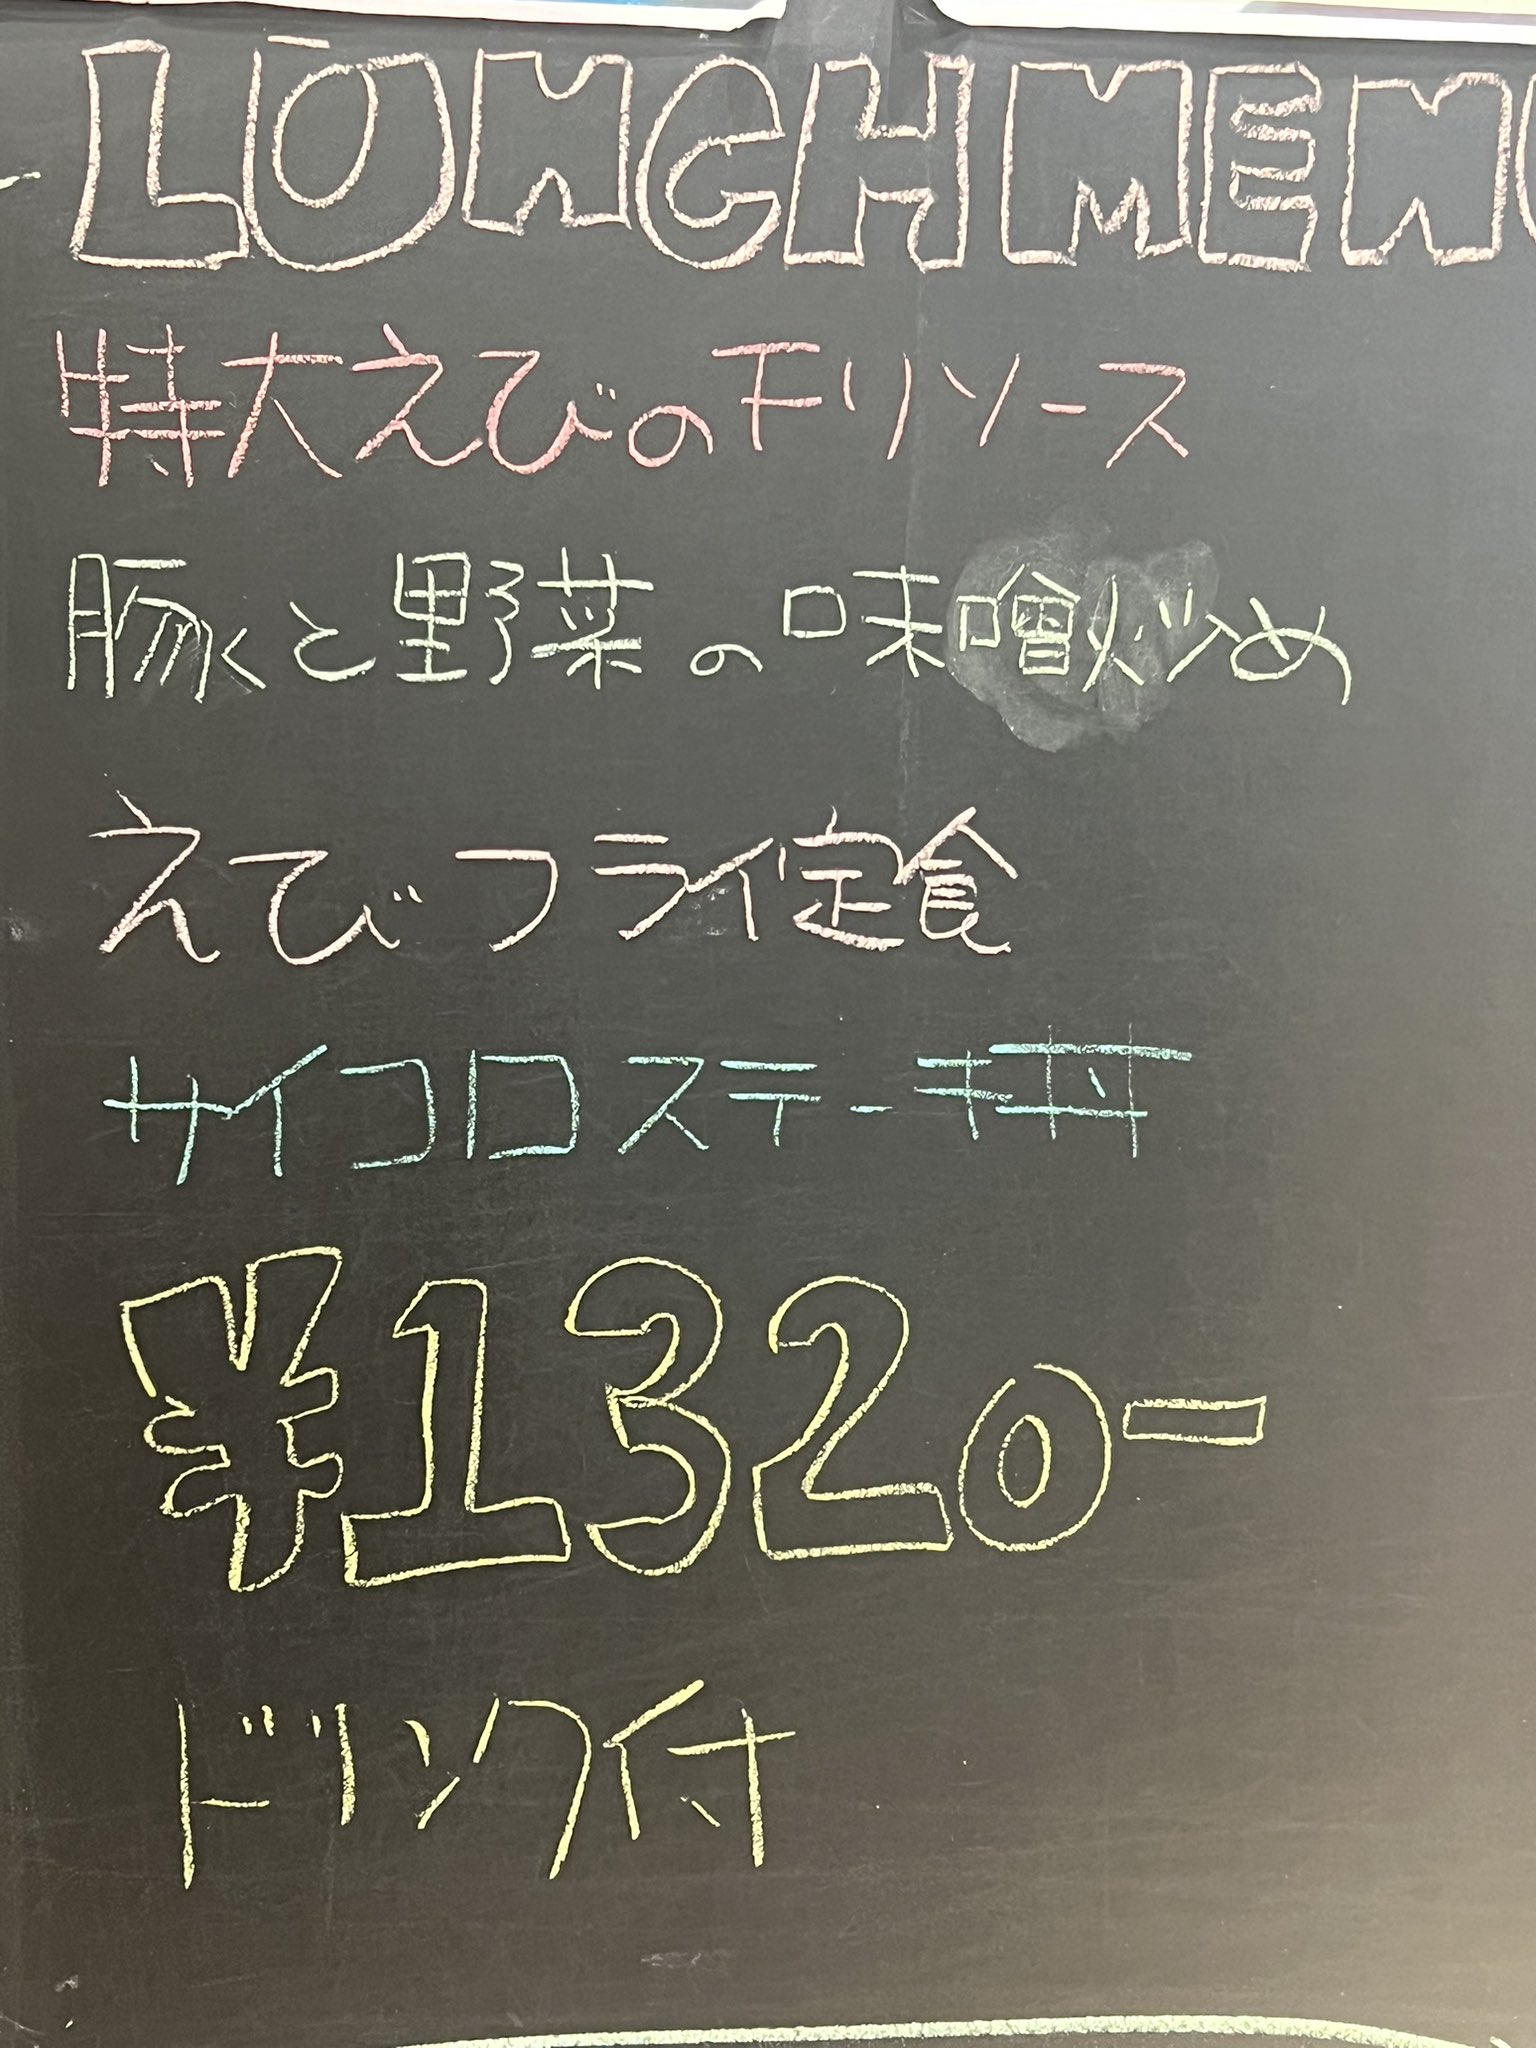 LUNCH MENU
特大えびのチリソース
豚と野菜の味噌炒め
えびフライ定食
サイコロステーキ丼
¥1320-
ドリンク付